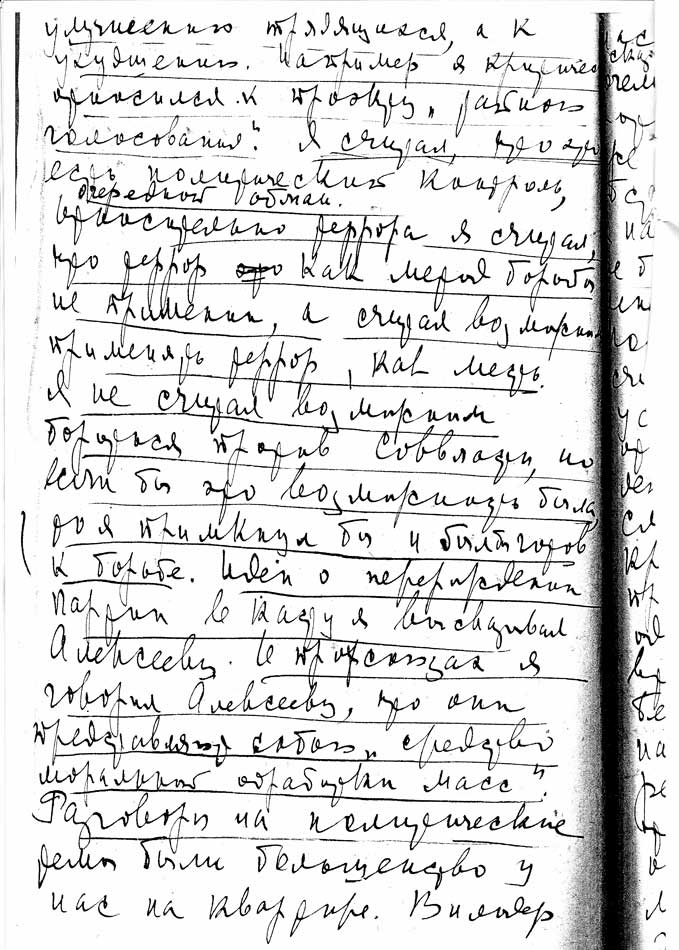 улучшению трудящихся, а к
ухудшению. Например я критически
относился к проекту „тайного
голосования“. Я считал, что это
есть политический контроль,
очередной обман.
Относительно террора я считал,
что террор это как метод борьбы
не применим, а считал возможным
применять террор, как месть.
Я не считал возможным
бороться против Соввласти, но
если бы эта возможность была,
то я примкнул бы и был бы готов
к борьбе. Идеи о перерождении
партии в касту я высказывал
Алексееву. О профсоюзах я
говорил Алексееву, что они
представляют собою „средство
моральной обработки масс“.
Разговоры на политические
темы были большинство у
нас на квартире.